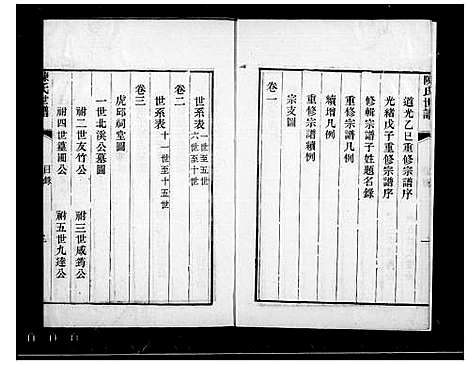 陳氏世譜
道光乙巳重修宗譜序
光緒戊子重修宗譜序
修輯宗譜子姓題名錄
重修宗譜凡例
續增凡例
重修宗譜續例
宗支圖
卷一
世系表 一世至五世 六世至十世
卷二
世系表 十一世至十五世
卷三
虎邱祠堂圖
一世北溪公墓圖
祔二世友竹公 祔三世咸筠公
祔四世墓圃公 祔五世九達公
陳氏世譜 目錄